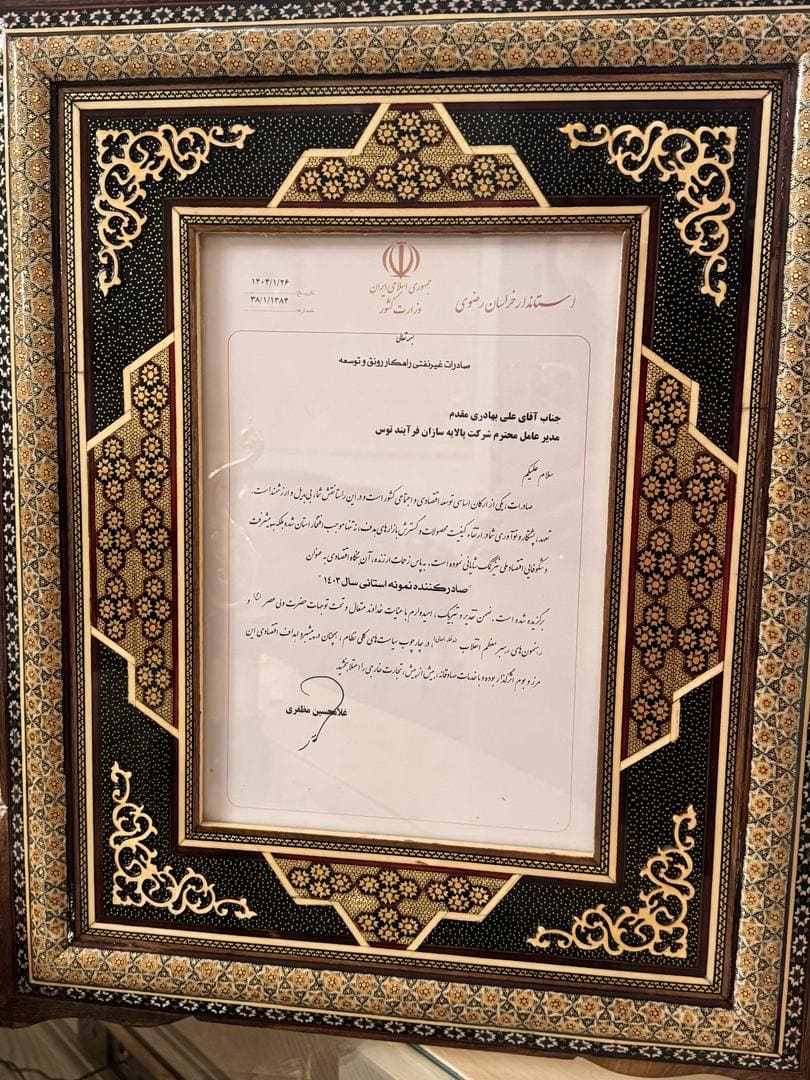 جمهوری اسلامی ایران
وزارت کشور
استاندار خراسان رضوی
تاریخ: ۱۴۰۴/۱/۲۶
شماره: ۳۸/۱/۱۳۸۴
بسمه تعالی
صادرات غیرنفتی راهکار رونق و توسعه
جناب آقای علی بهادری مقدم
مدیر عامل محترم شرکت پالایه سازان فرآیند توس
سلام علیکم
صادرات، یکی از ارکان اساسی توسعه اقتصادی و اجتماعی کشور است و در این راستا نقش شما، بی‌بدیل و ارزشمند است.
تعهد، پشتکار و نوآوری شما در ارتقاء کیفیت محصولات و گسترش بازارهای هدف، نه تنها موجب افتخار استان شده بلکه به پیشرفت
و شکوفایی اقتصاد ملی نیز کمک شایانی نموده است. به پاس زحمات ارزنده، آن بنگاه اقتصادی به عنوان
"صادرکننده نمونه استانی سال ۱۴۰۳"
برگزیده شده است. ضمن تقدیر و تبریک، امیدوارم با عنایت خداوند متعال و تحت توجهات حضرت ولی عصر (عج) و
رهنمون‌های رهبر معظم انقلاب (مدظله العالی)، در چارچوب سیاست‌های کلی نظام، همچنان در پیشبرد اهداف اقتصادی این
مرز و بوم اثرگذار بوده و با خدمات صادقانه، بیش از پیش، تجارت خارجی را اعتلا بخشید.
غلامحسین مظفری